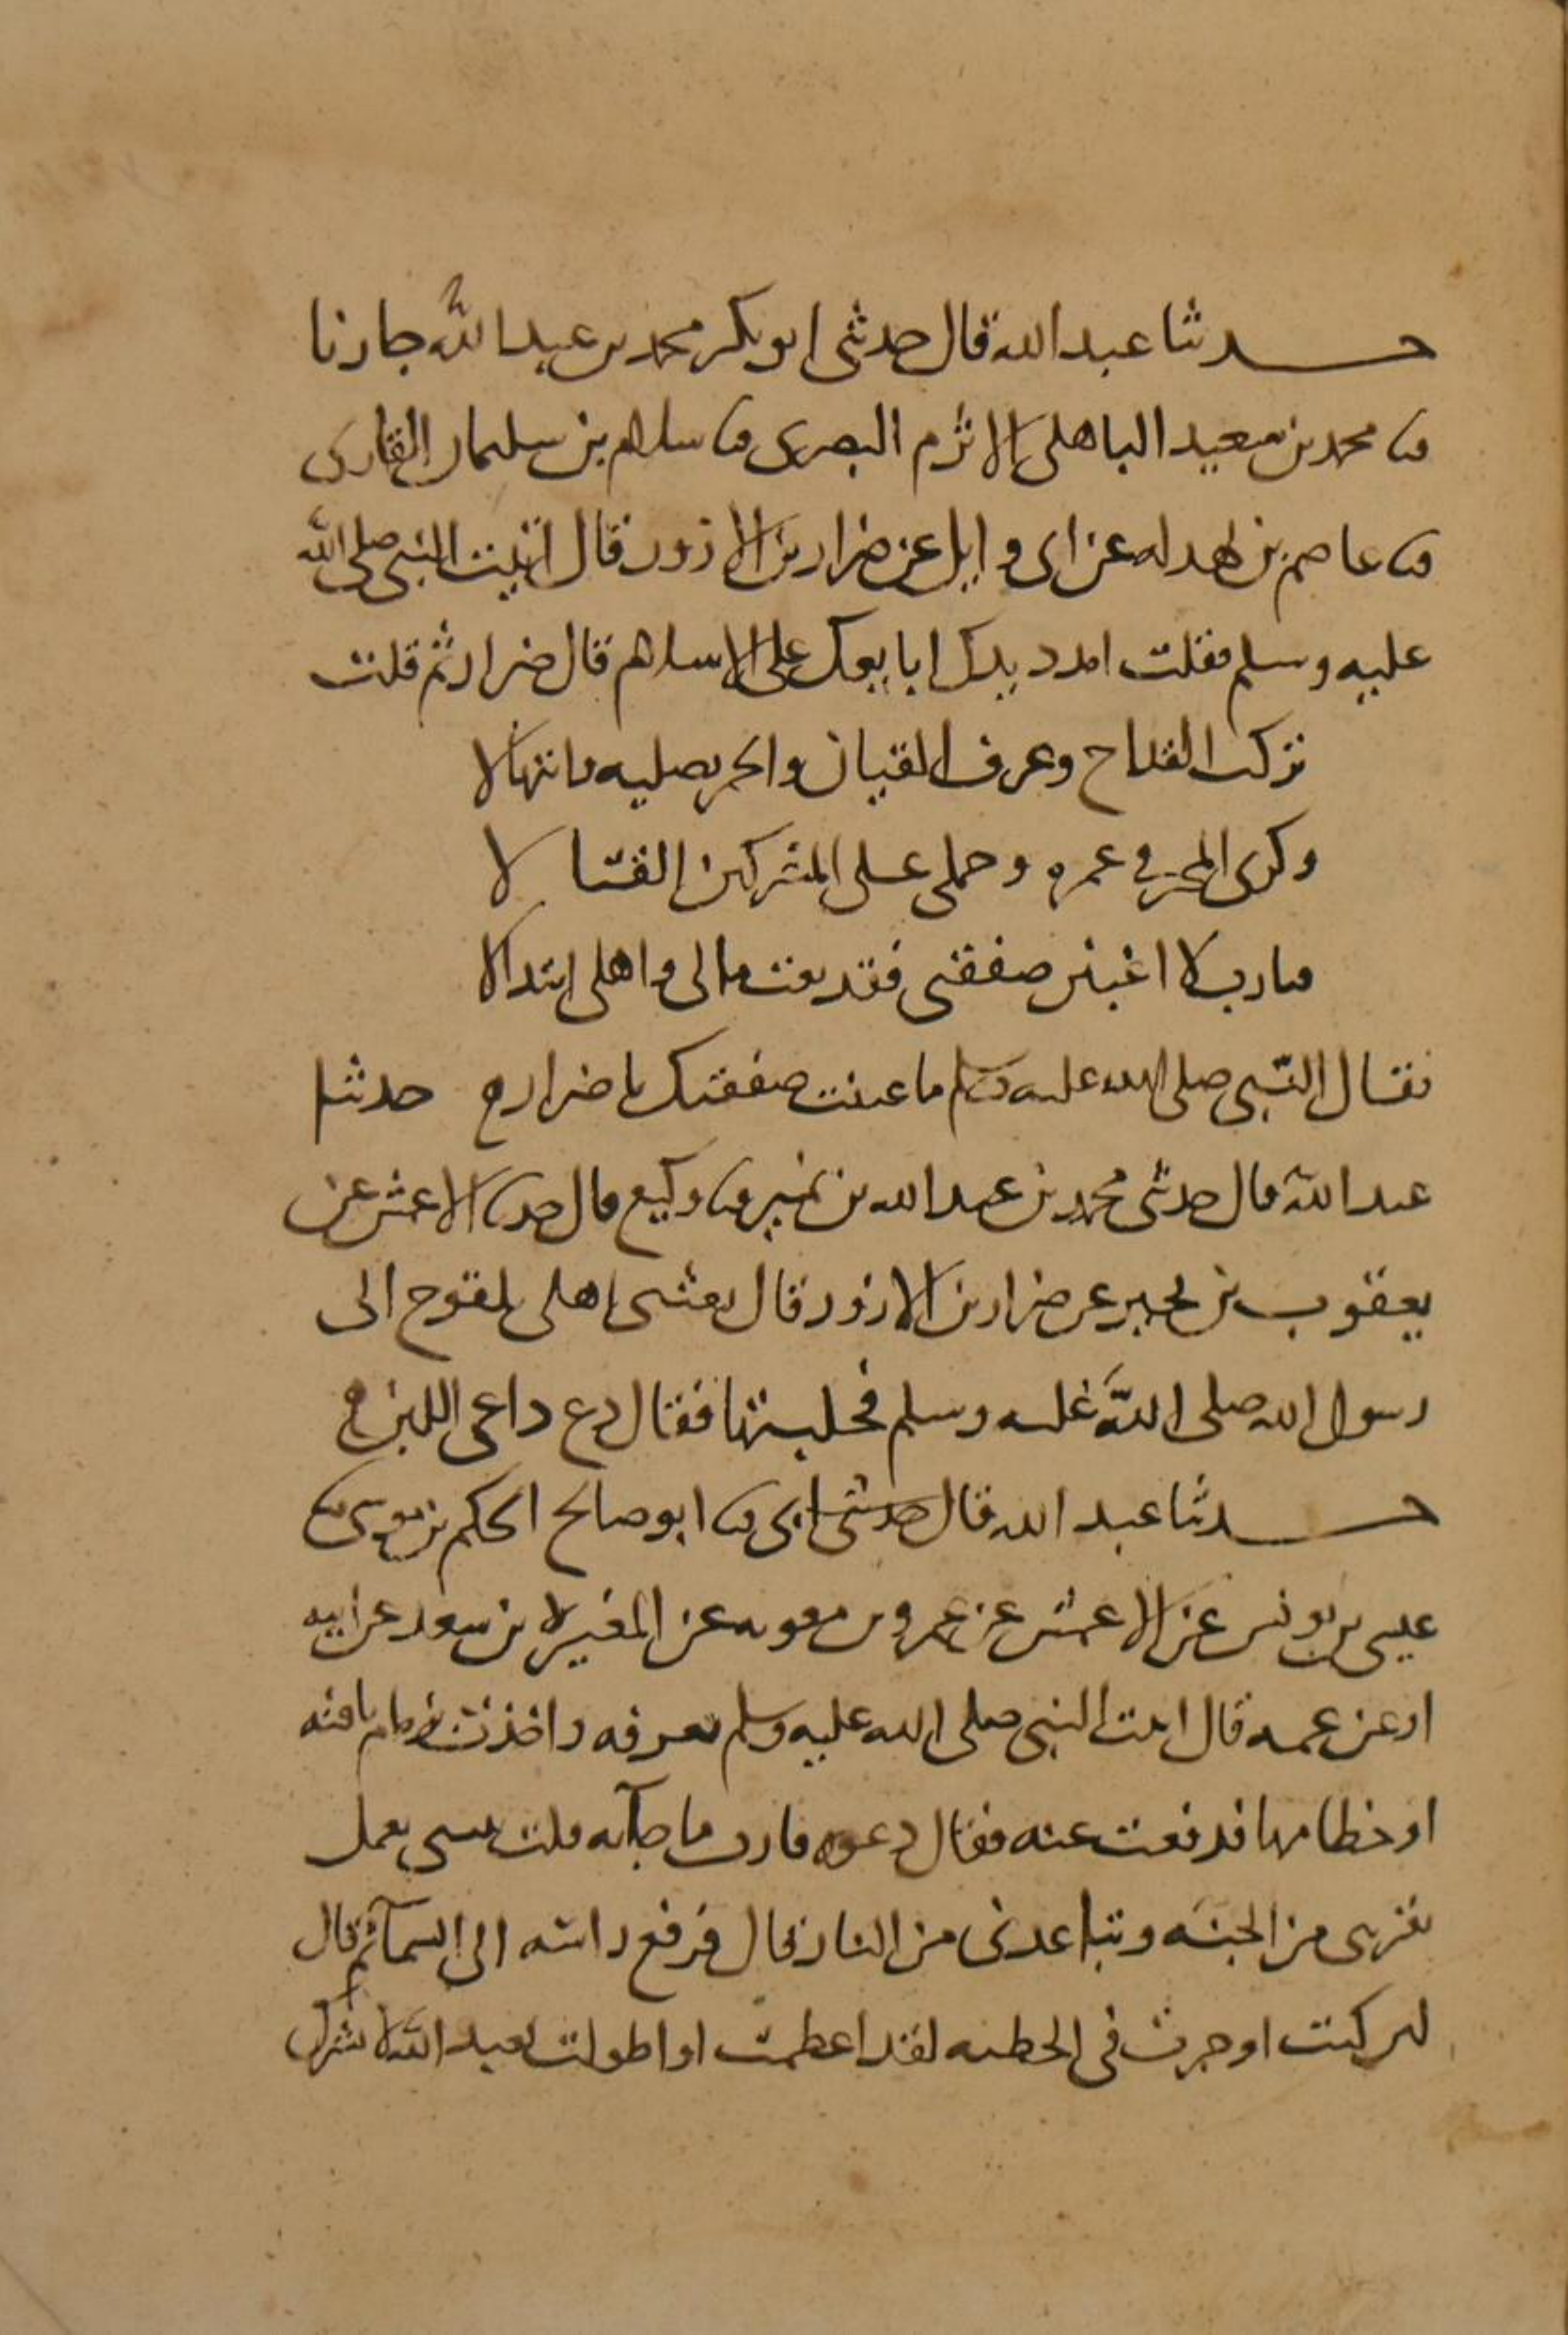 حدثنا عبد الله قال حدثنى ابو بكر محمد بن عبد الله جارنا
ثنا محمد بن سعيد الباهلى الاثرم البصرى ثنا سلام بن سليمان القارى
ثنا عاصم بن بهدله عن ابى وايل عن ضرار بن الازور قال اتيت النبى صلى الله
عليه وسلم فقلت امدد يدك ابايعك على الاسلام قال ضرار ثم قلت
تركت القداح وعزف القيان والخمر تصليه وانتهالا
وكرى المحبر فى غمره وحملى على المشركين القتالا
فيا رب لا اغبنن صفقتى فقد بعت مالى واهلى ابتدالا
فقال النبى صلى الله عليه وسلم ما غبنت صفقتك يا ضرار ه حدثنا
عبد الله قال حدثنى محمد بن عبد الله بن نمير ثنا وكيع قال حدثنا الاعمش عن
يعقوب بن بحير عن ضرار بن الازور قال بعثنى اهلى بلقوح الى
رسول الله صلى الله عليه وسلم فحلبتها فقال دع داعى اللبن ه
حدثنا عبد الله قال حدثنى ابى ثنا ابو صالح الحكم بن موسى ثنا
عيسى بن يونس عن الاعمش عن عمرو بن مره عن المغيرة بن سعد عن ابيه
او عن عمه قال اتيت النبى صلى الله عليه وسلم بعرفه فاخذت بزمام ناقته
او خطامها فدفعت عنه فقال دعوه فارب ما جآبه قلت نبينى بعمل
يقربنى من الجنه ويباعدنى من النار قال فرفع راسه الى السمآ ثم قال
لين كنت اوجزت فى الخطبه لقد اعظمت او اطولت تعبد الله لا تشرك